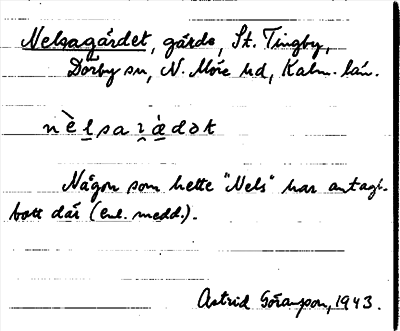 Nelsagärdet, gärde, St. Tingby,
Dörby sn, N. Möre hd, Kalm. län.
nè̱lsaɿæ̀dət
Någon som hette "Nels" har antagl.
bott där (enl. medd.).
Astrid Göransson, 1943.